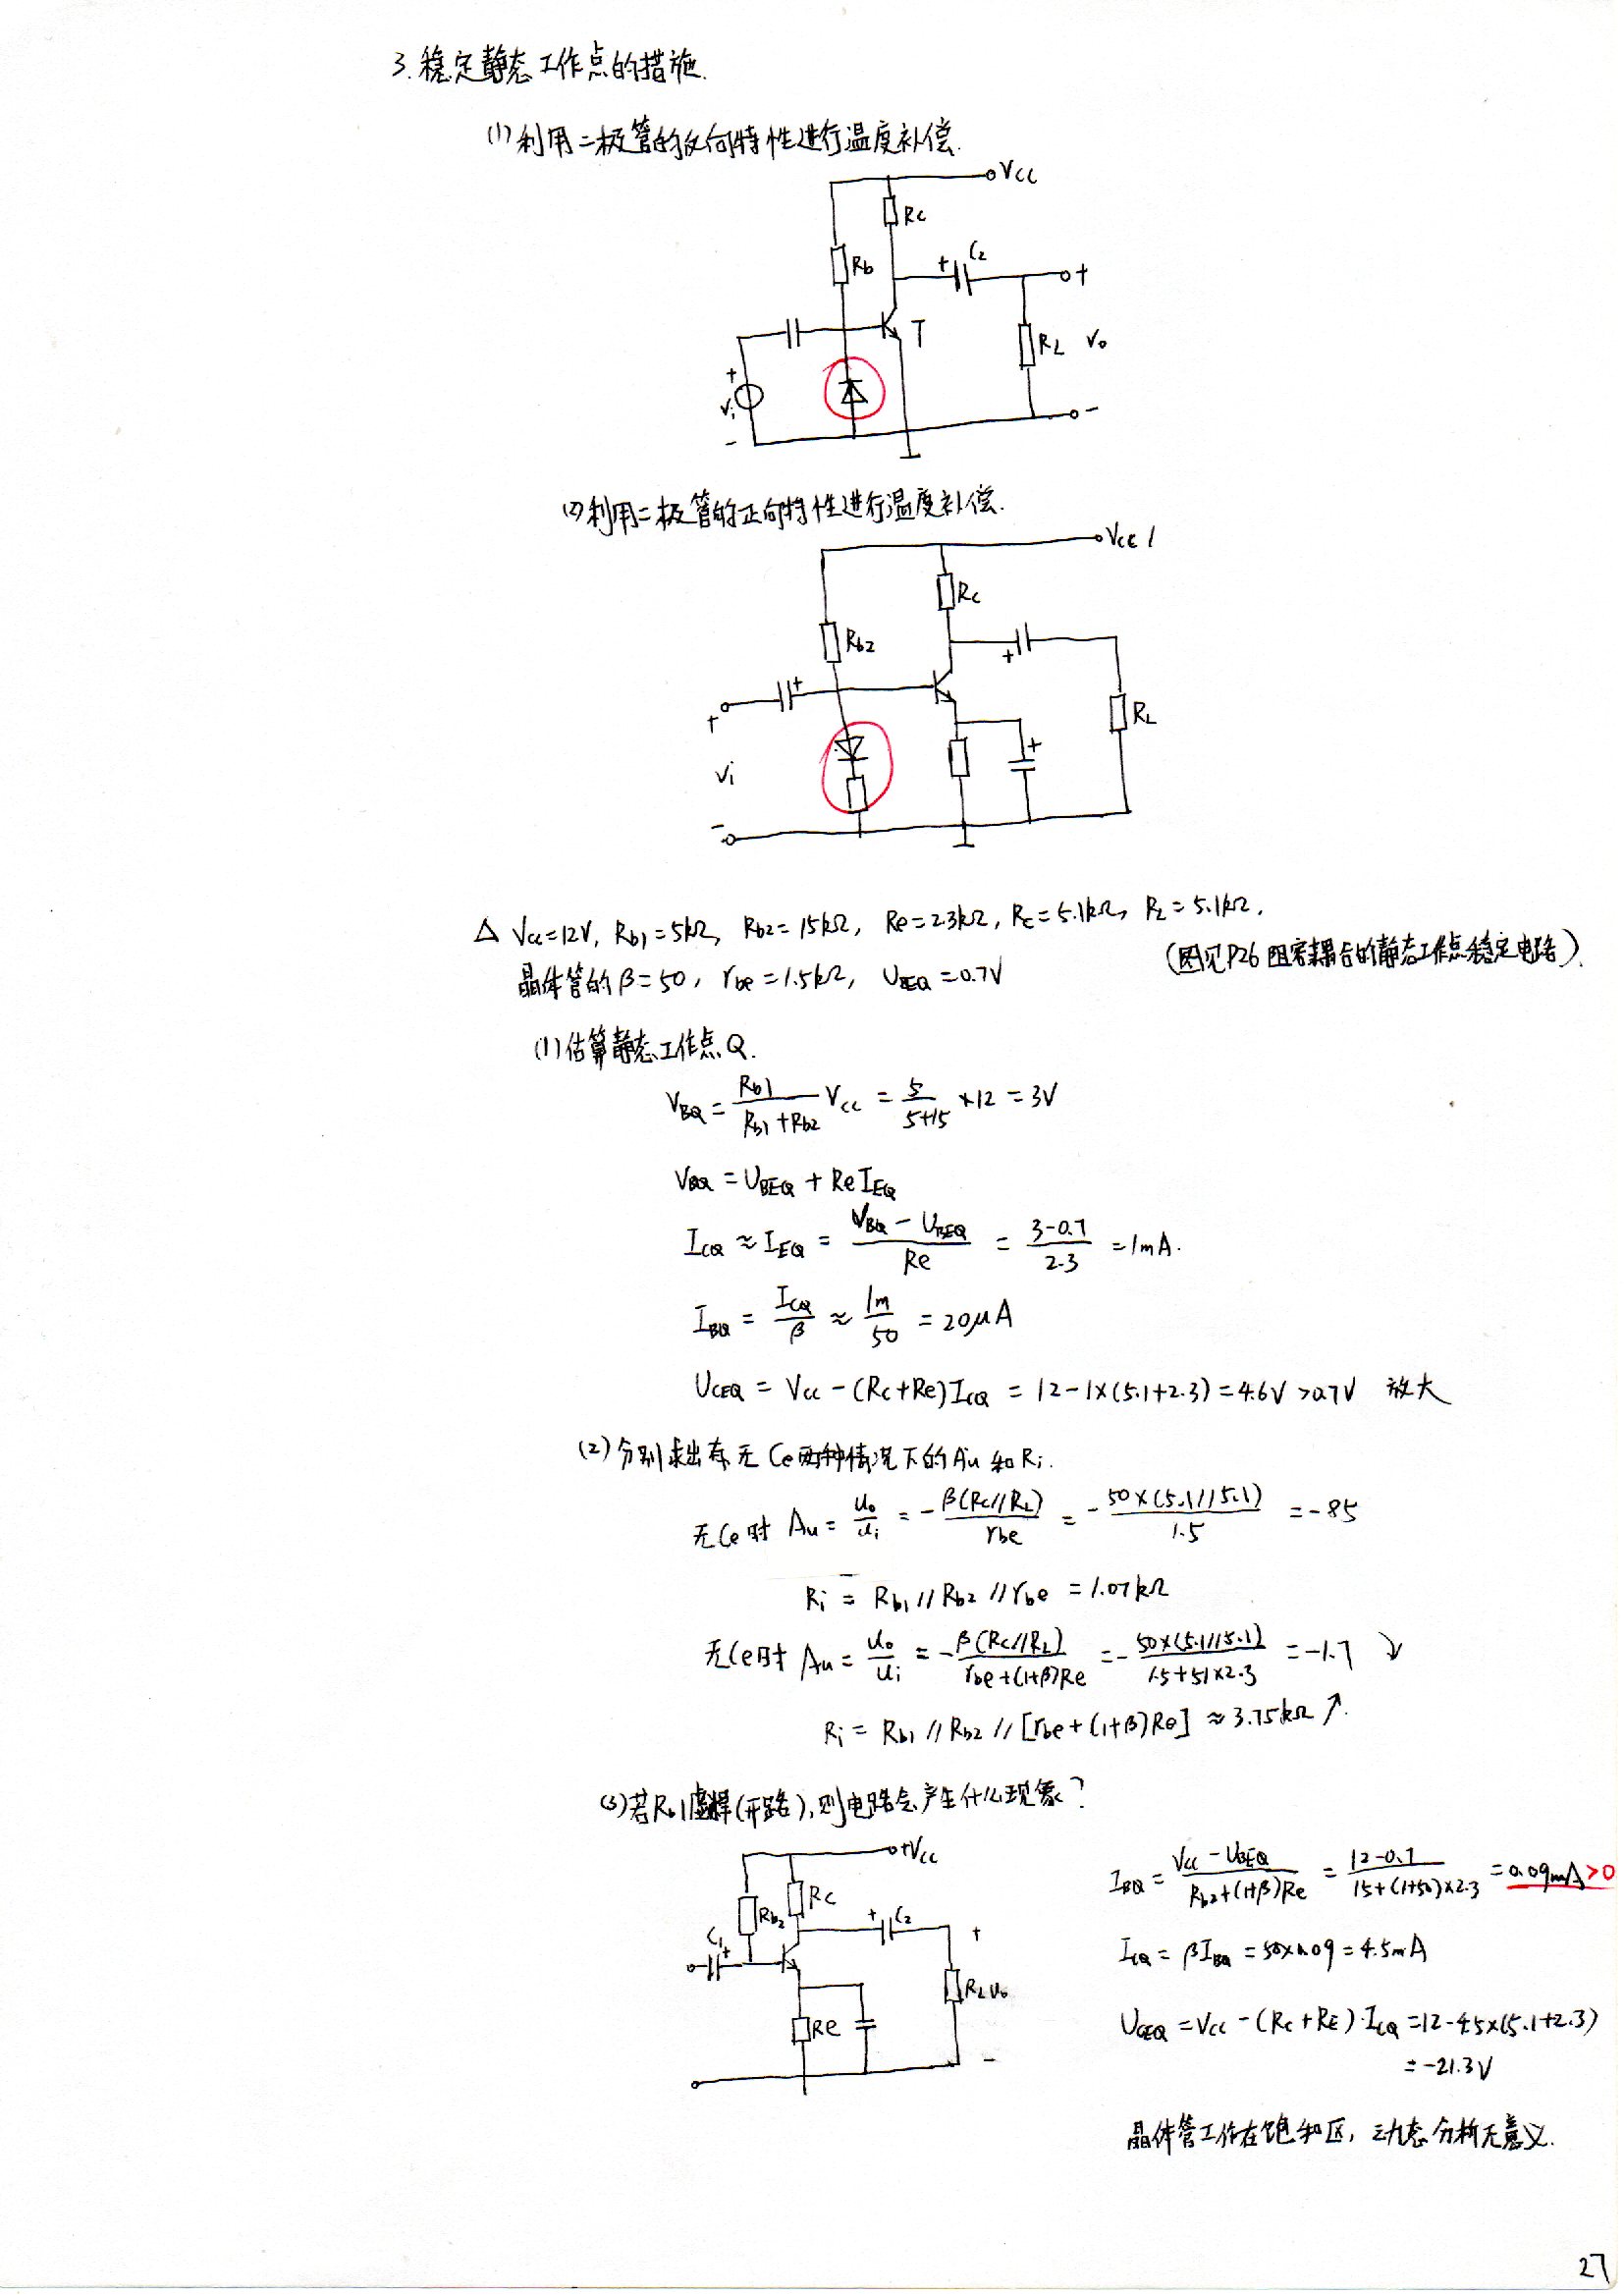 3.稳定静态工作点的措施.
(1)利用二极管的反向特性进行温度补偿.
Vcc
Rc
Rb
+ C2
+
T
RL Vo
+
Vi
-
-
(2)利用二极管的正向特性进行温度补偿.
Vcc 1
Rc
Rb2
+
+
+
RL
+
Vi
-
△ Vcc=12V, Rb1=5kΩ, Rb2=15kΩ, Re=2.3kΩ, Rc=5.1kΩ, RL=5.1kΩ.
(图见P26 阻容耦合的静态工作点稳定电路).
晶体管的β=50, rbe=1.5kΩ, UBEQ=0.7V
(1)估算静态工作点Q.
VBQ = Rb1/(Rb1+Rb2) Vcc = 5/(5+15) ×12 = 3V
VBQ = UBEQ + ReIEQ
ICQ ≈ IEQ = (VBQ - UBEQ)/Re = (3-0.7)/2.3 = 1mA.
IBQ = ICQ/β ≈ 1m/50 = 20μA
UCEQ = Vcc - (Rc+Re)ICQ = 12-1×(5.1+2.3) = 4.6V >0.7V 放大
(2)分别求出有无Ce两种情况下的Au和Ri.
无Ce时 Au = uo/ui = - β(Rc//RL)/rbe = - 50×(5.1//5.1)/1.5 = -85
Ri = Rb1//Rb2//rbe = 1.07kΩ
无Ce时 Au = uo/ui = - β(Rc//RL)/(rbe+(1+β)Re) = - 50×(5.1//5.1)/(1.5+51×2.3) = -1.7 ↘
Ri = Rb1//Rb2//[rbe+(1+β)Re] ≈ 3.75kΩ ↗.
(3)若Rb1虚焊(开路),则电路会产生什么现象?
+Vcc
Rc
Rb2
C1
+
+ C2
+
RL uo
Re
-
IBQ = (Vcc - UBEQ)/(Rb2+(1+β)Re) = (12-0.7)/(15+(1+50)×2.3) = 0.09mA>0
ICQ = βIBQ = 50×0.09 = 4.5mA
UCEQ = Vcc - (Rc+RE)·ICQ = 12-4.5×(5.1+2.3)
= -21.3V
晶体管工作在饱和区, 动态分析无意义.
27